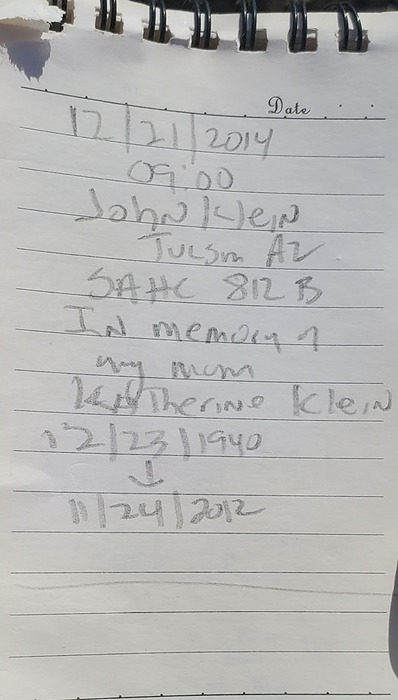 Date
12/21/2014
09:00
John Klein
Tucson AZ
SAHC 812 B
IN memory of
my mom
Katherine Klein
12/23/1940
↓
11/24/2012